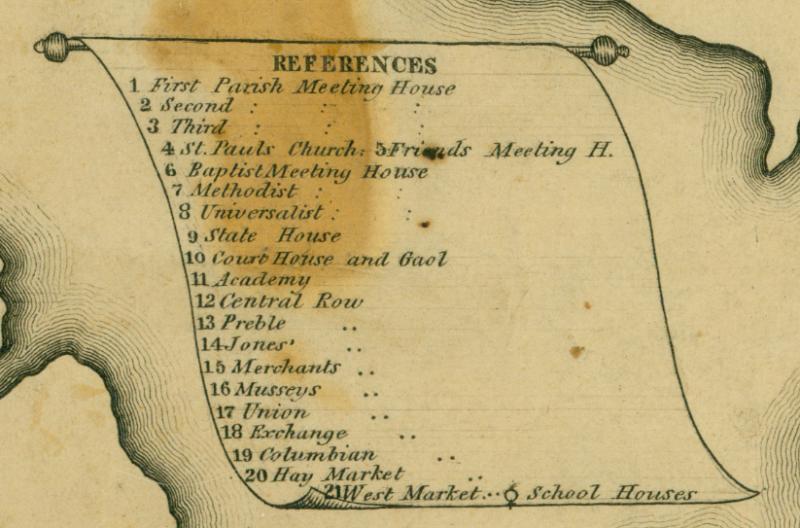 REFERENCES
1 First Parish Meeting House
2 Second : : :
3 Third : : :
4 St. Pauls Church: 5 Friends Meeting H.
6 Baptist Meeting House
7 Methodist : :
8 Universalist : :
9 State House
10 Court House and Gaol
11 Academy
12 Central Row
13 Preble ..
14 Jones' ..
15 Merchants ..
16 Musseys ..
17 Union ..
18 Exchange ..
19 Columbian ..
20 Hay Market ..
21 West Market .. ♀ School Houses